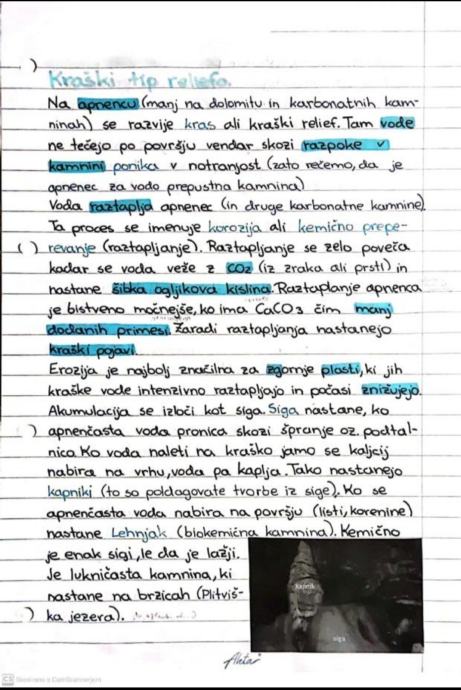 Kraški tip reliefa.
Na apnencu (manj na dolomitu in karbonatnih kam-
ninah) se razvije kras ali kraški relief. Tam vode
ne tečejo po površju vendar skozi razpoke v
kamnini ponika v notranjost (zato rečemo, da je
apnenec za vodo prepustna kamnina)
Voda raztaplja apnenec (in druge karbonatne kamnine).
Ta proces se imenuje korozija ali kemično prepe-
revanje (raztapljanje). Raztapljanje se zelo poveča
kadar se voda veže z CO2 (iz zraka ali prsti) in
nastane šibka ogljikova kislina. Raztaplanje apnenca
je bistveno močnejše, ko ima CaCO3 čim manj
dodanih primesi. Zaradi raztapljanja nastanejo
kraški pojavi.
Erozija je najbolj značilna za zgornje plasti, ki jih
kraške vode intenzivno raztapljajo in počasi znižujejo.
Akumulacija se izloči kot siga. Siga nastane, ko
apnenčasta voda pronica skozi špranje oz. podtal-
nica. Ko voda naleti na kraško jamo se kalcij
nabira na vrhu, voda pa kaplja. Tako nastanejo
kapniki (to so poldagovate tvorbe iz sige). Ko se
apnenčasta voda nabira na površju (listi, korenine)
nastane Lehnjak (biokemična kamnina). Kemično
je enak sigi, le da je lažji.
Je lukničasta kamnina, ki
nastane na brzicah (Plitviš-
ka jezera).
kapnik
siga
CS Scanned with CamScanner